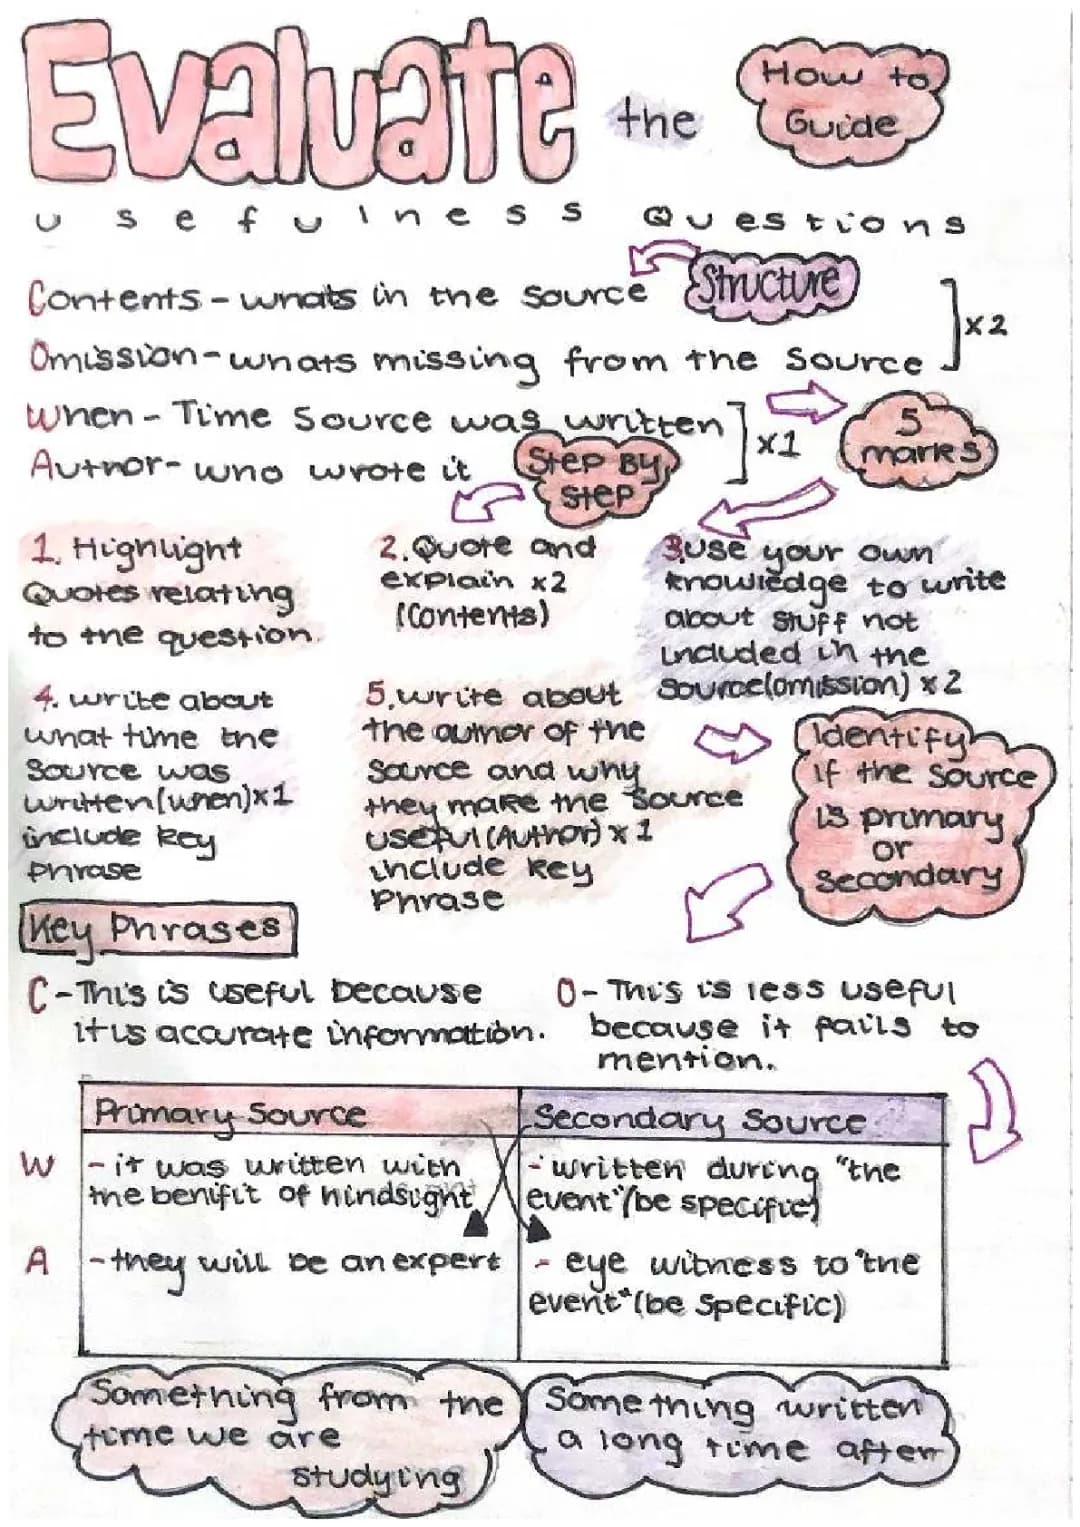 Evaluate the How to
Guide
usefulness Questions
Structure
Contents - whats in the source
Omission - whats missing from the source
]x2
When - Time Source was written
Author - who wrote it
]x1
5
marks
Step By
Step
1. Highlight
Quotes relating
to the question.
2. Quote and
explain x2
(Contents)
3. use your own
knowledge to write
about stuff not
included in the
source (omission) x2
4. write about
what time the
source was
written (when) x1
include key
phrase
5. write about
the author of the
source and why
they make the source
useful (Author) x1
include key
Phrase
Identify
if the source
is primary
or
secondary
Key Phrases
C - This is useful because
it is accurate information.
O - This is less useful
because it fails to
mention.
Primary Source
Secondary Source
W
- it was written with
the benifit of hindsight
- written during "the
event" (be specific)
A
- they will be an expert
- eye witness to "the
event" (be specific)
Something from the
time we are
studying
Something written
a long time after